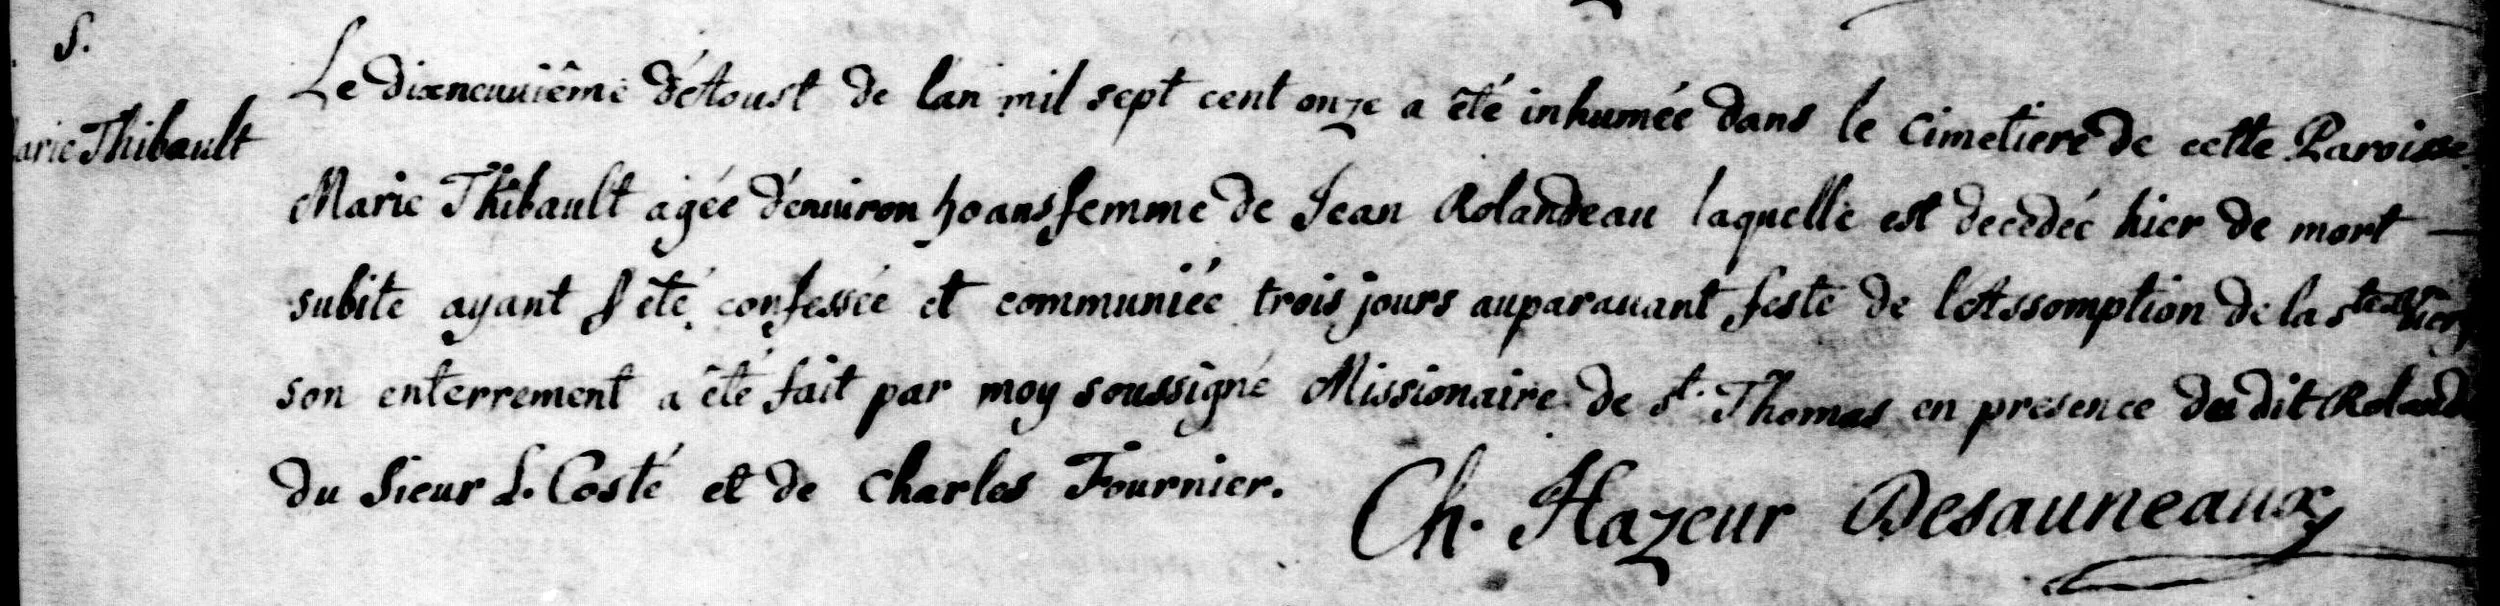 S.
Marie Thibault
Le dixneuuiême d'Aoust de lan mil sept cent onze a êté inhumée dans le Cimetiere de cette Paroisse
Marie Thibault agée d'enuiron ans femme de Jean Rolandeau laquelle est decedée hier de mort
subite ayant été confessée et communiée trois jours auparauant feste de l'Assomption de la Ste Vierg
son enterrement a êté fait par moy soussigné Missionaire de St. Thomas en presence du dit Roland
du Sieur L. Costé et de Charles Fournier.
Ch. Hazeur Desauneaux